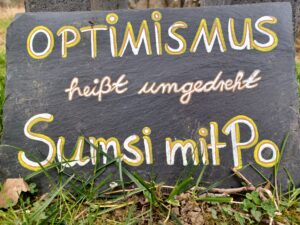 OPTIMISMUS
heißt umgedreht
Sumsi mit Po